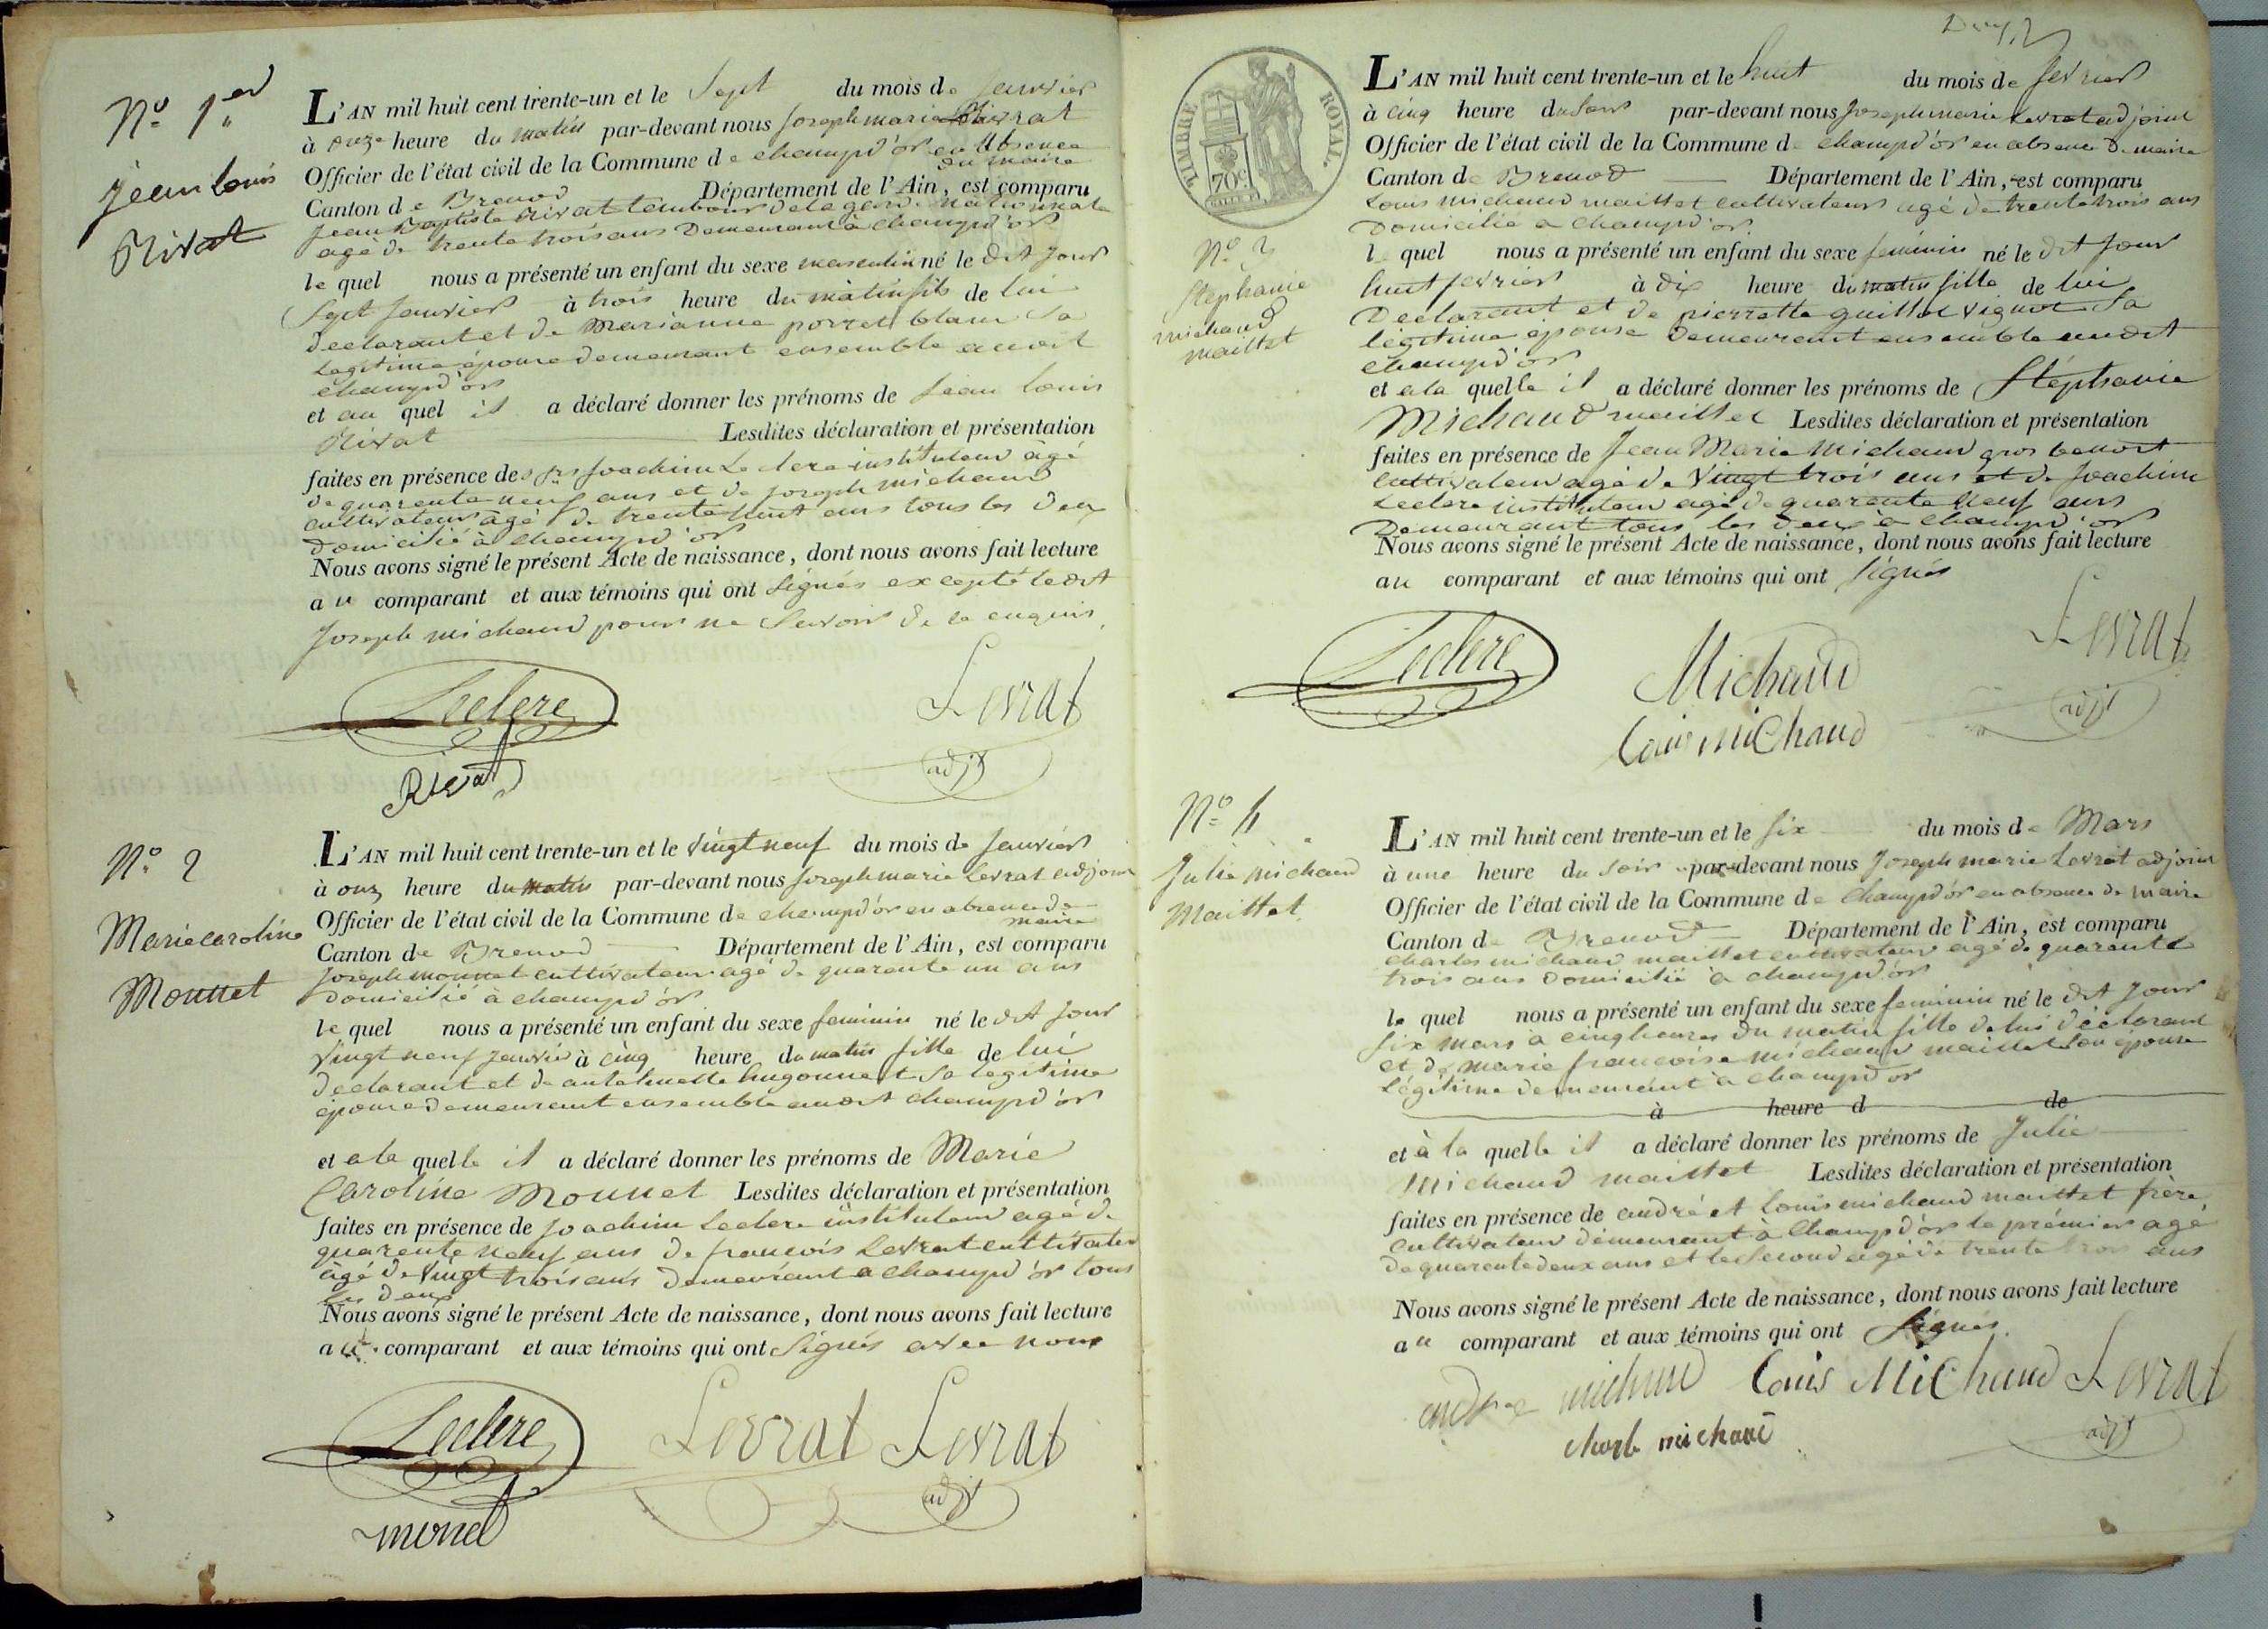 N° 1er
Jean Louis
Rivat
L'AN mil huit cent trente-un et le Sept du mois de Janvier
à onze heure du matin par-devant nous Joseph marie Levrat
Officier de l'état civil de la Commune de champd'or en absence
du maire
Canton de Brenod Département de l'Ain, est comparu
Jean Baptiste Rivat tambour de la garde nationale
agé de trente trois ans Demeurant à champd'or
le quel nous a présenté un enfant du sexe masculin né le dit jour
Sept Janvier à trois heure du matin fils de lui
declarant et de Marianne porret blanc Sa
Legitime épouse demeurant ensemble audit
champd'or
et au quel il a déclaré donner les prénoms de Jean Louis
Rivat Lesdites déclaration et présentation
faites en présence des Joachim Leclere instituteur âgé
de quarante neuf ans et de Joseph michaud
cultivateur âgé de trente huit ans tous les deux
domicilié à champd'or
Nous avons signé le présent Acte de naissance, dont nous avons fait lecture
au comparant et aux témoins qui ont signés excepté ledit
Joseph michaud pour ne Savoir de ce enquis.
Leclere
Levrat
adjt
Rivat
N° 2
Marie caroline
Monnet
L'AN mil huit cent trente-un et le vingt neuf du mois de Janvier
à onz heure du matin par-devant nous Joseph marie Levrat adjoint
Officier de l'état civil de la Commune de champd'or en absence de
maire
Canton de Brenod Département de l'Ain, est comparu
Joseph monnet cultivateur agé de quarante un ans
domicilié à champd'or
le quel nous a présenté un enfant du sexe feminin né le dit jour
vingt neuf Janvier à cinq heure du matin fille de lui
declarant et de anthelmette hugonnet Sa legitime
épouse demeurant ensemble audit champd'or
et a la quelle il a déclaré donner les prénoms de Marie
Caroline Monnet Lesdites déclaration et présentation
faites en présence de Joachim Leclere instituteur agé de
quarante neuf ans de francois Levrat cultivateur
âgé de vingt trois ans demeurant a champd'or tous
les deux
Nous avons signé le présent Acte de naissance, dont nous avons fait lecture
au comparant et aux témoins qui ont signés avec nous
Leclere
Levrat Levrat
adjt
monet
TIMBRE ROYAL.
70c
N° 3
Stephanie
michaud
maillet
L'AN mil huit cent trente-un et le huit du mois de fevrier
à cinq heure du soir par-devant nous Joseph marie Levrat adjoint
Officier de l'état civil de la Commune de champd'or en absence de maire
Canton de Brenod Département de l'Ain, est comparu
Louis michaud maillet cultivateur agé de trente trois ans
Domicilié a champd'or.
le quel nous a présenté un enfant du sexe feminin né le dit jour
huit fevrier à dix heure du matin fille de lui
Declarant et de pierrette guillot vignot Sa
légitime épouse Demeurant ensemble audit
champd'or
et a la quelle il a déclaré donner les prénoms de Stéphanie
Michaud maillet Lesdites déclaration et présentation
faites en présence de Jean Marie Michaud gros benoit
cultivateur agé de vingt trois ans et de Joachim
Leclere instituteur agé de quarante neuf ans
Demeurant tous les deux à champd'or
Nous avons signé le présent Acte de naissance, dont nous avons fait lecture
au comparant et aux témoins qui ont signés
Leclere
Michaud
Levrat
adjt
Louis michaud
N° 4
Julie michaud
Maillet
L'AN mil huit cent trente-un et le six du mois de Mars
à une heure du soir par-devant nous Joseph marie Levrat adjoint
Officier de l'état civil de la Commune de champd'or en absence de maire
Canton de Brenod Département de l'Ain, est comparu
charles michaud maillet cultivateur agé de quarante
trois ans domicilié à champd'or
le quel nous a présenté un enfant du sexe feminin né le dit jour
six mars à cinq heures du matin fille de lui déclarant
et de marie francoise michaud maillet Son épouse
légitime demeurant à champd'or
à heure d de
et à la quelle il a déclaré donner les prénoms de Julie
Michaud maillet Lesdites déclaration et présentation
faites en présence de andré et Louis michaud maillet frère
cultivateur demeurant à Champd'or le prémier agé
de quarante deux ans et le second agé de trente trois ans
Nous avons signé le présent Acte de naissance, dont nous avons fait lecture
au comparant et aux témoins qui ont signés.
andre michaud Louis Michaud Levrat
adjt
charle michaud